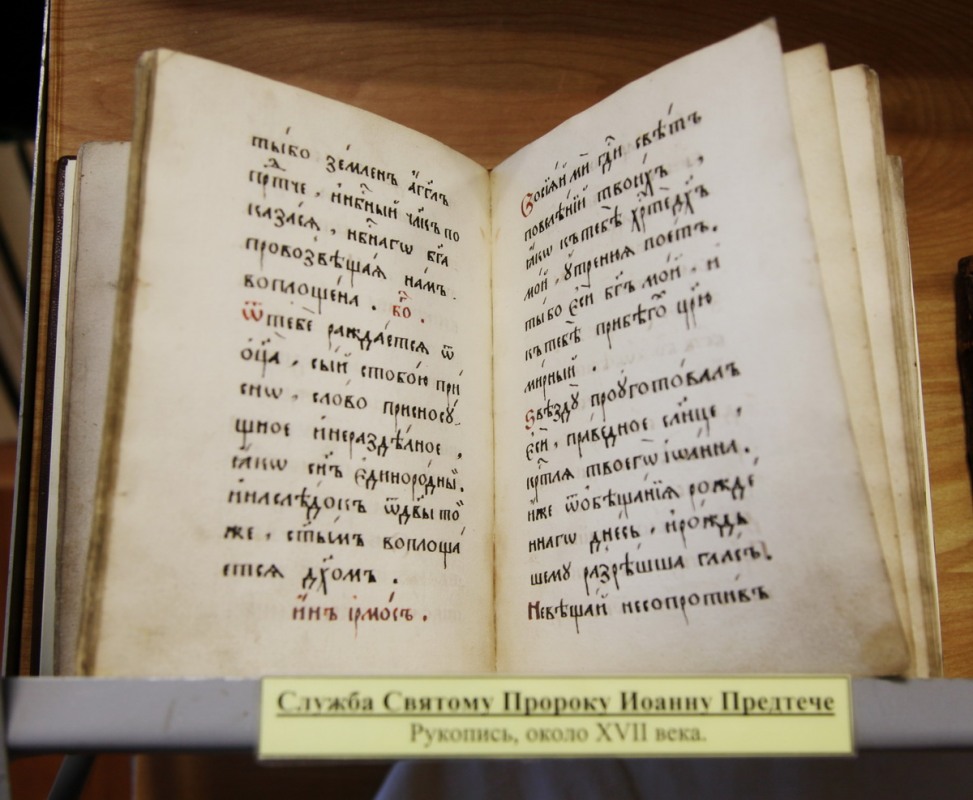 ты́бо зе́мленъ а́гг҃лъ
пр҇тче, и҆нб҃ный чл҃къ по
каза́сѧ, нб҃наго бг҃а
провозвѣща́ѧ на́мъ.
воплоще́на. бо҇.
ѿтебѐ ражда́етсѧ ѿ
ѻ҆ц҃а, сы́й стобо́ю при
сно, сло́во присносу́
щное и҆нераздѣ́лное,
ꙗ҆́кѡ сн҃ъ є҆диноро́дны.
и҆наслѣ́докъ ѿдв҃ы то́
же, ст҃ы́мъ воплоща́
етсѧ дх҃омъ.
и҆́нъ ірмо́съ.
Ѡосїѧ́й ми гд҇и свѣ́тъ
повелѣ́нїй твои́хъ,
ꙗ҆́кѡ къ тебѣ̀ хр҇тѐ дх҃ъ
мо́й, ᲂу҆́тренюѧ пое́тъ.
ты́ бо є҆сѝ бг҃ъ мо́й, и
къ тебѣ̀ прибѣ́го цр҃ю̀
ми́рный.
Ѕвѣздꙋ̀ проуготова́лъ
є҆сѝ, пра́ведное сл҃нце,
кр҇тлѧ твоегѡ̀ і҆ѡа́нна.
и҆́же ѿѻбѣща́нїѧ рожде́
ннагѡ дне́сь, и҆ро́ждь
шемꙋ разрѣ́шша гла́съ.
Невѣща́й несопроти́въ
Служба Святому Пророку Иоанну Предтече
Рукопись, около XVII века.